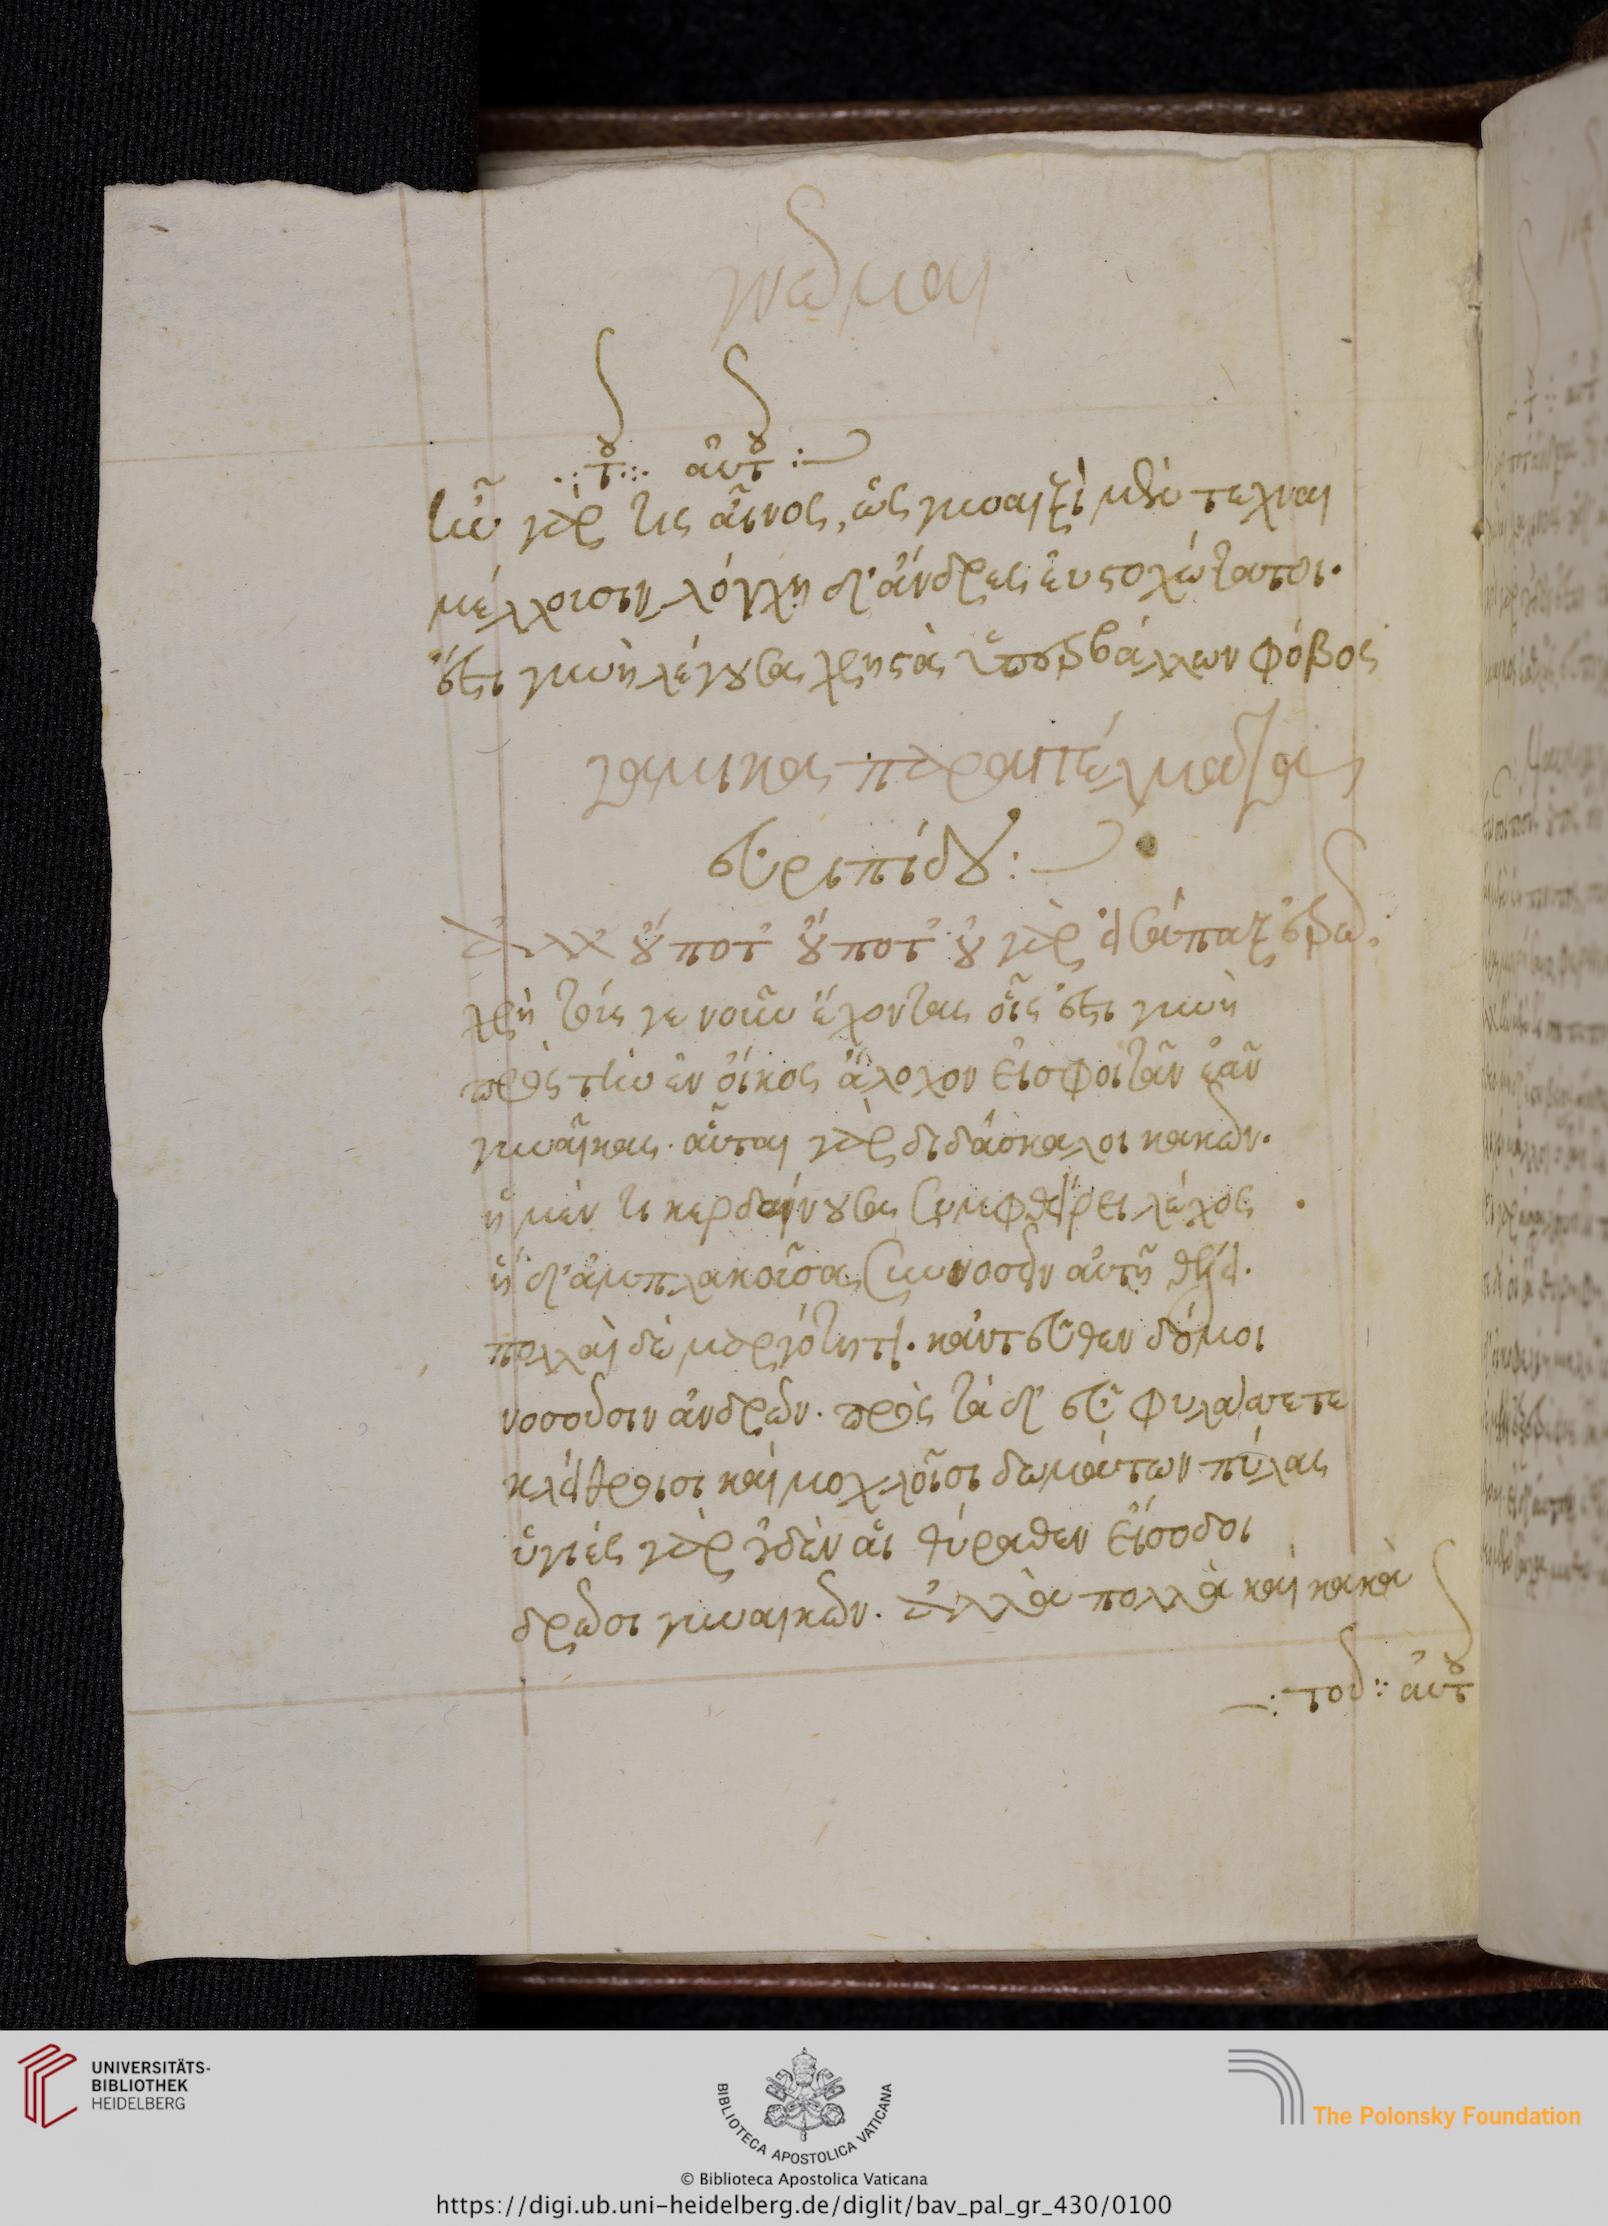 γνῶμαι
τοῦ αὐτοῦ :
ἦν γάρ τις αἶνος, ὡς γυναιξὶ μὲν τέχναι
μέλλοισιν λόγχη δ' ἄνδρες εὐστοχώτατοι.
ἔστι γυνὴ λέγουσα χρηστὰ ὑπερβάλλων φόβος
εὐριπίδου :
ἀλλ' οὔποτ' οὔποτ' οὐ γὰρ εἰσάπαξ ἐρῶ.
χρὴ τούς γε νοῦν ἔχοντας οἷς ἐστι γυνὴ
πρὸς τὴν ἐν οἴκος ἄλοχον εἰσφοιτᾶν ἐᾶν
γυναῖκας. αὗται γὰρ διδάσκαλοι κακῶν.
ἡ μέν τι κερδαίνουσα συμφθείρει λέχος
ἡ δ' ἀμπλακοῦσα συνοσεῖν αὐτῆ θέλει.
πολλαὶ δὲ μαργότητι. κἀντεῦθεν δόμοι
νοσοῦσιν ἀνδρῶν. πρὸς τάδ' εὖ φυλάσσετε
κλείθροισι καὶ μοχλοῖσι δωμάτων πύλας
ὑγιές γὰρ οὐδὲν αἱ θύραθεν εἴσοδοι
δρῶσι γυναικῶν. ἀλλὰ πολλὰ καὶ κακὰ
τοῦ : αὐτοῦ
UNIVERSITÄTS-
BIBLIOTHEK
HEIDELBERG
BIBLIOTECA APOSTOLICA VATICANA
The Polonsky Foundation
© Biblioteca Apostolica Vaticana
https://digi.ub.uni-heidelberg.de/diglit/bav_pal_gr_430/0100